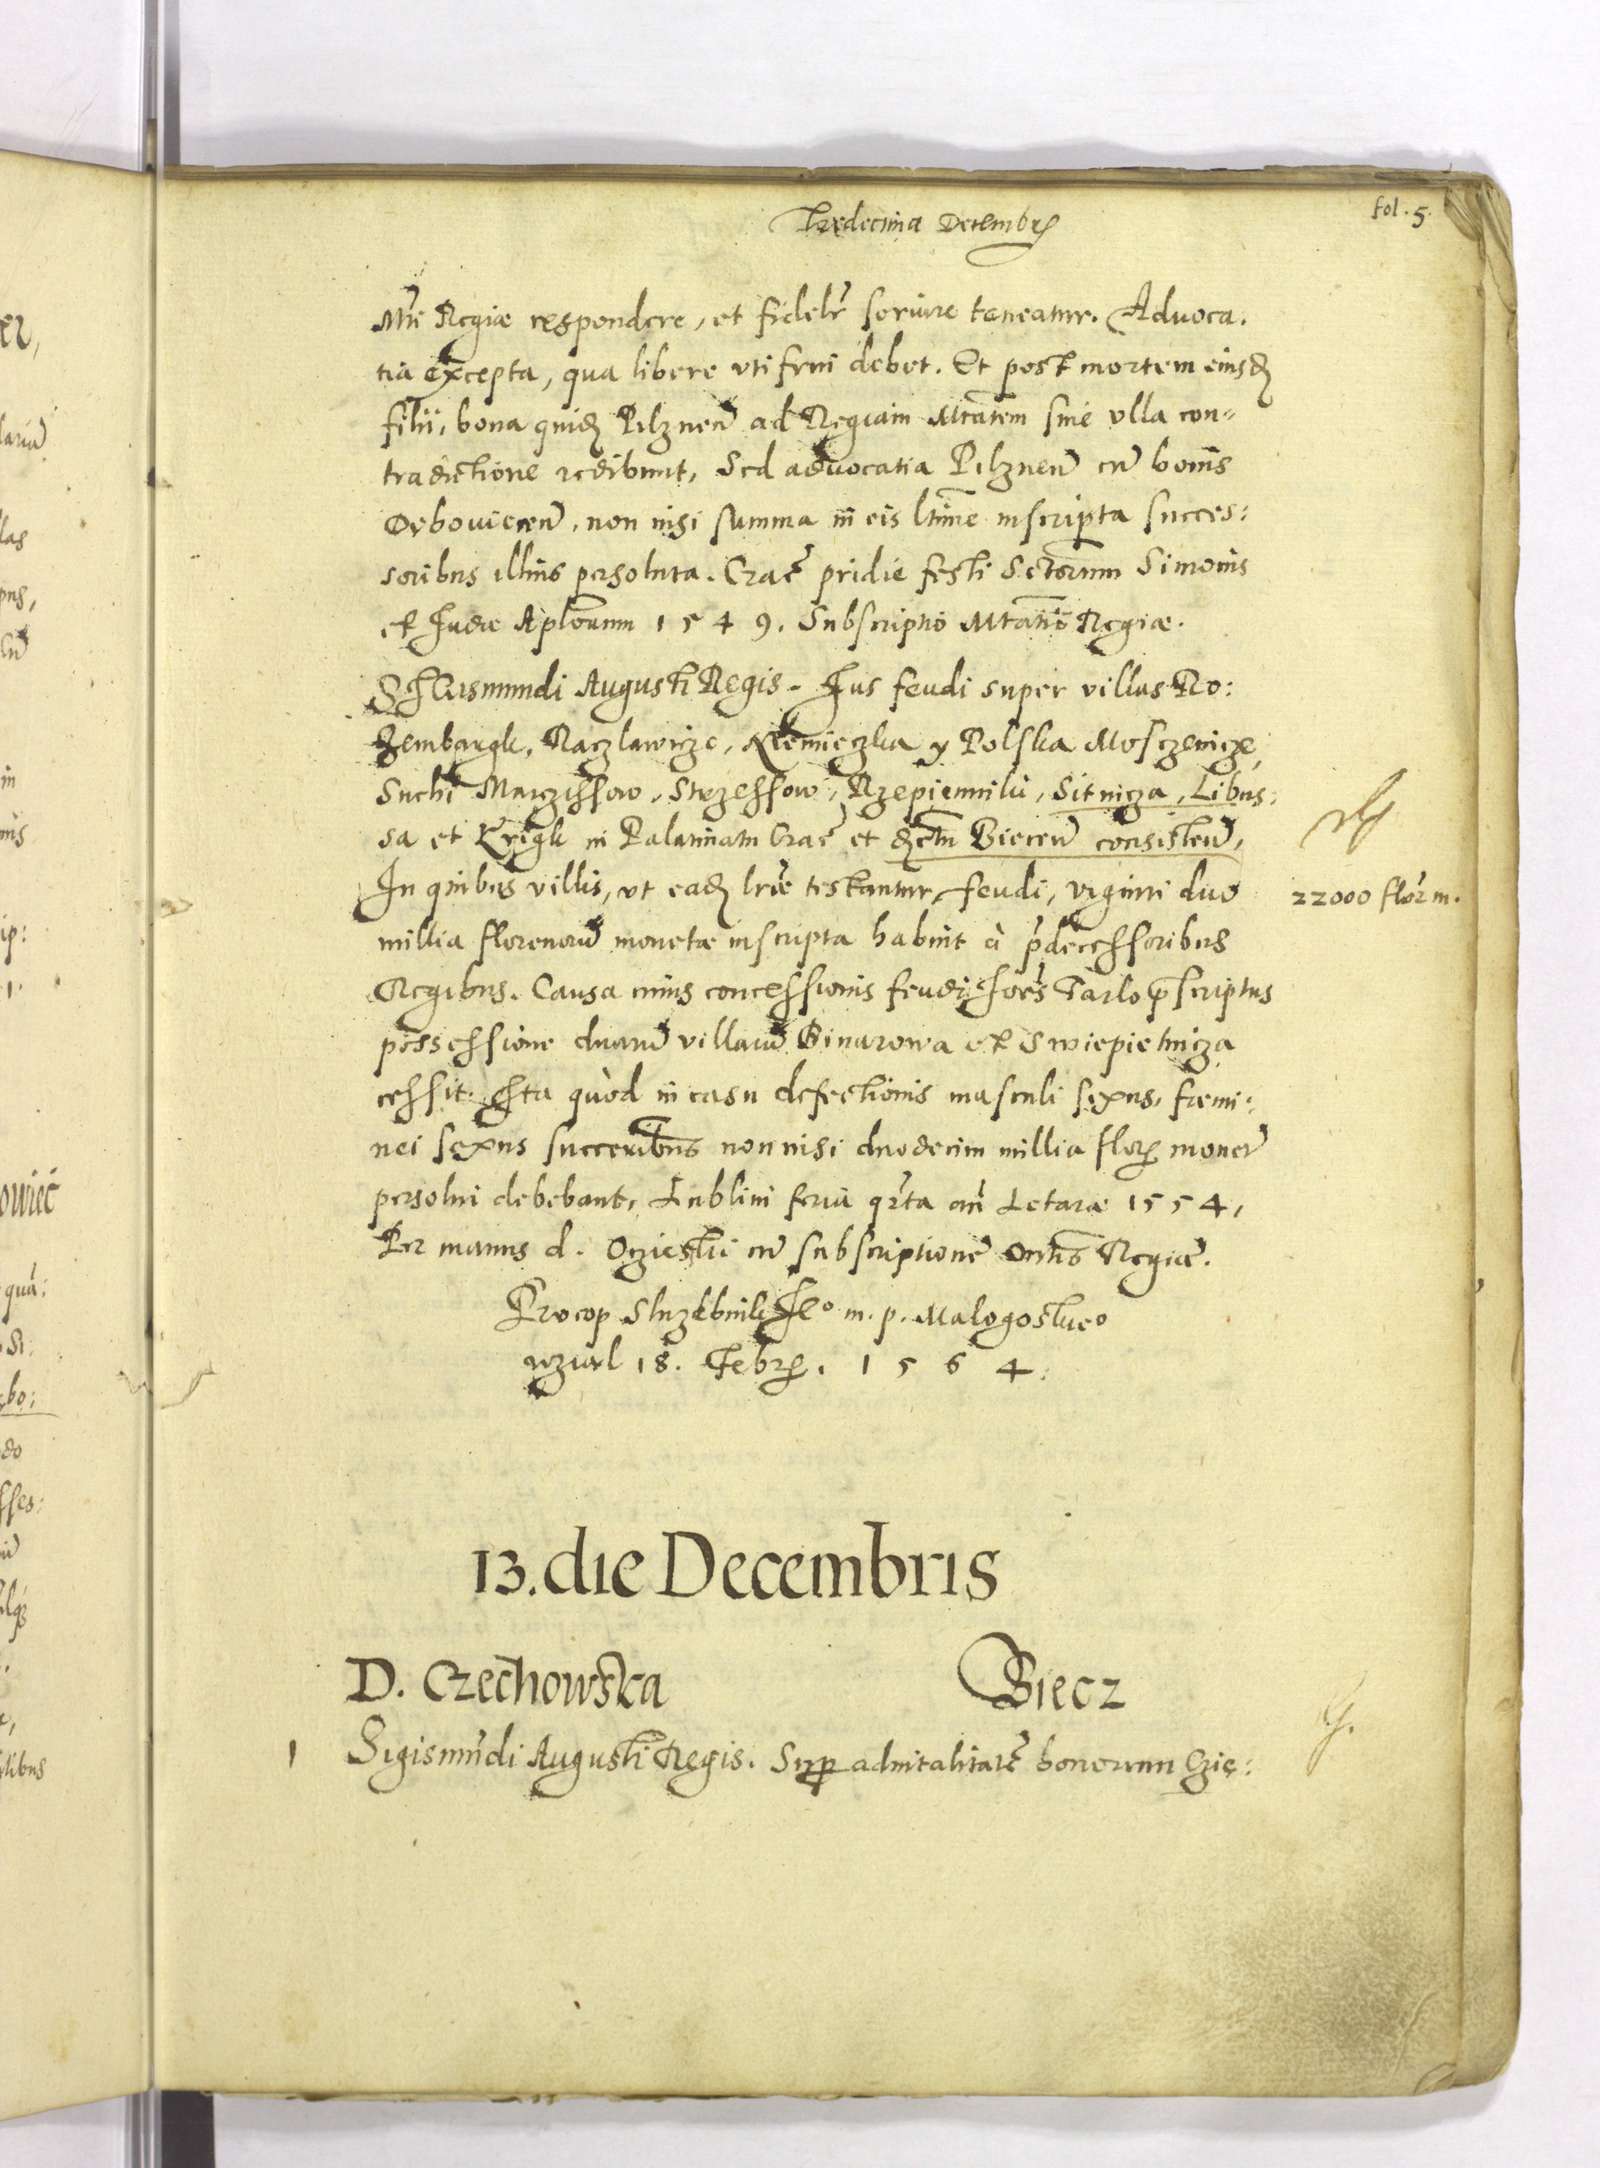 Tredecima Decembris
fol. 5.
Mti Regiæ respondere, et fidelr seruire teneatur. Aduoca.
tia excepta, qua libere vti frui debet. Et post mortem eiusd
filii, bona quid Pilznen ad Regiam Mtatem sine vlla con-
tradictione redibunt, Sed aduocatia Pilznen cu bonis
non nisi summa in eis ltime inscripta succes:
soribus illius persoluta. Crac pridie festi Sctorum Simonis
et Judæ Aplorum 1549. Subscriptio Mtatis Regiæ.
Sigismundi Augusti Regis. Jus feudi super villas Ro:
zembargk, Raczlawicze, Niemieczka y Polska Mosczenicze,
Suchi Marczissow, Strzessow, Rzepiennik, Sitnicza, Libus:
sa et Krigk in Palatinatu Crac et dictu Biecen consisten,
In quibus villis, vt ead lræ testantur, feudi, viginti duo
22000 flor m.
millia florenoru monetæ inscripta habuit à pdecessoribus
Regibus. Causa cuius concessionis feudi Joes Tarlo pscriptus
possessione duaru villaru Binarowa et Swiepietnicza
cessit. Ita quòd in casu defectionis masculi sexus, fœmi:
nei sexus non nisi duodecim millia flor monet
persolui debebant, Lublini feria qrta an Letare 1554,
Per manus d. Oczieski cu subscriptione Mtis Regiæ.
Procop m. p. Malogostuo
wzial 18. Febr. 1564.
13. die Decembris
D. Czechowska Biecz
1 Sigismudi Augusti Regis. Sup aduitalitate bonorum Czie: